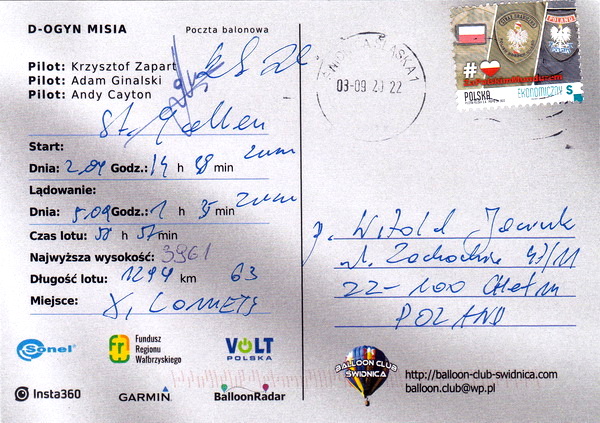 D-OGYN MISIA Poczta balonowa
Pilot: Krzysztof Zapart
Pilot: Adam Ginalski
Pilot: Andy Cayton
St. Gallen
Start:
Dnia: 2.09 Godz.: 14 h 38 min
Lądowanie:
Dnia: 5.09 Godz.: 1 h 35 min
Czas lotu: 58 h 57 min
Najwyższa wysokość: 3961
Długość lotu: 1294 km 63
Miejsce:
Sonel
Fundusz
Regionu
Wałbrzyskiego
VOLT
POLSKA
Insta360
GARMIN
BalloonRadar
03-09 20 22
POLAND
#
POLSKA EKONOMICZNY S
p. Witold
ul. Zachodnia 43/11
22-100 Chełm
POLAND
BALLOON CLUB
SWIDNICA
http://balloon-club-swidnica.com
balloon.club@wp.pl